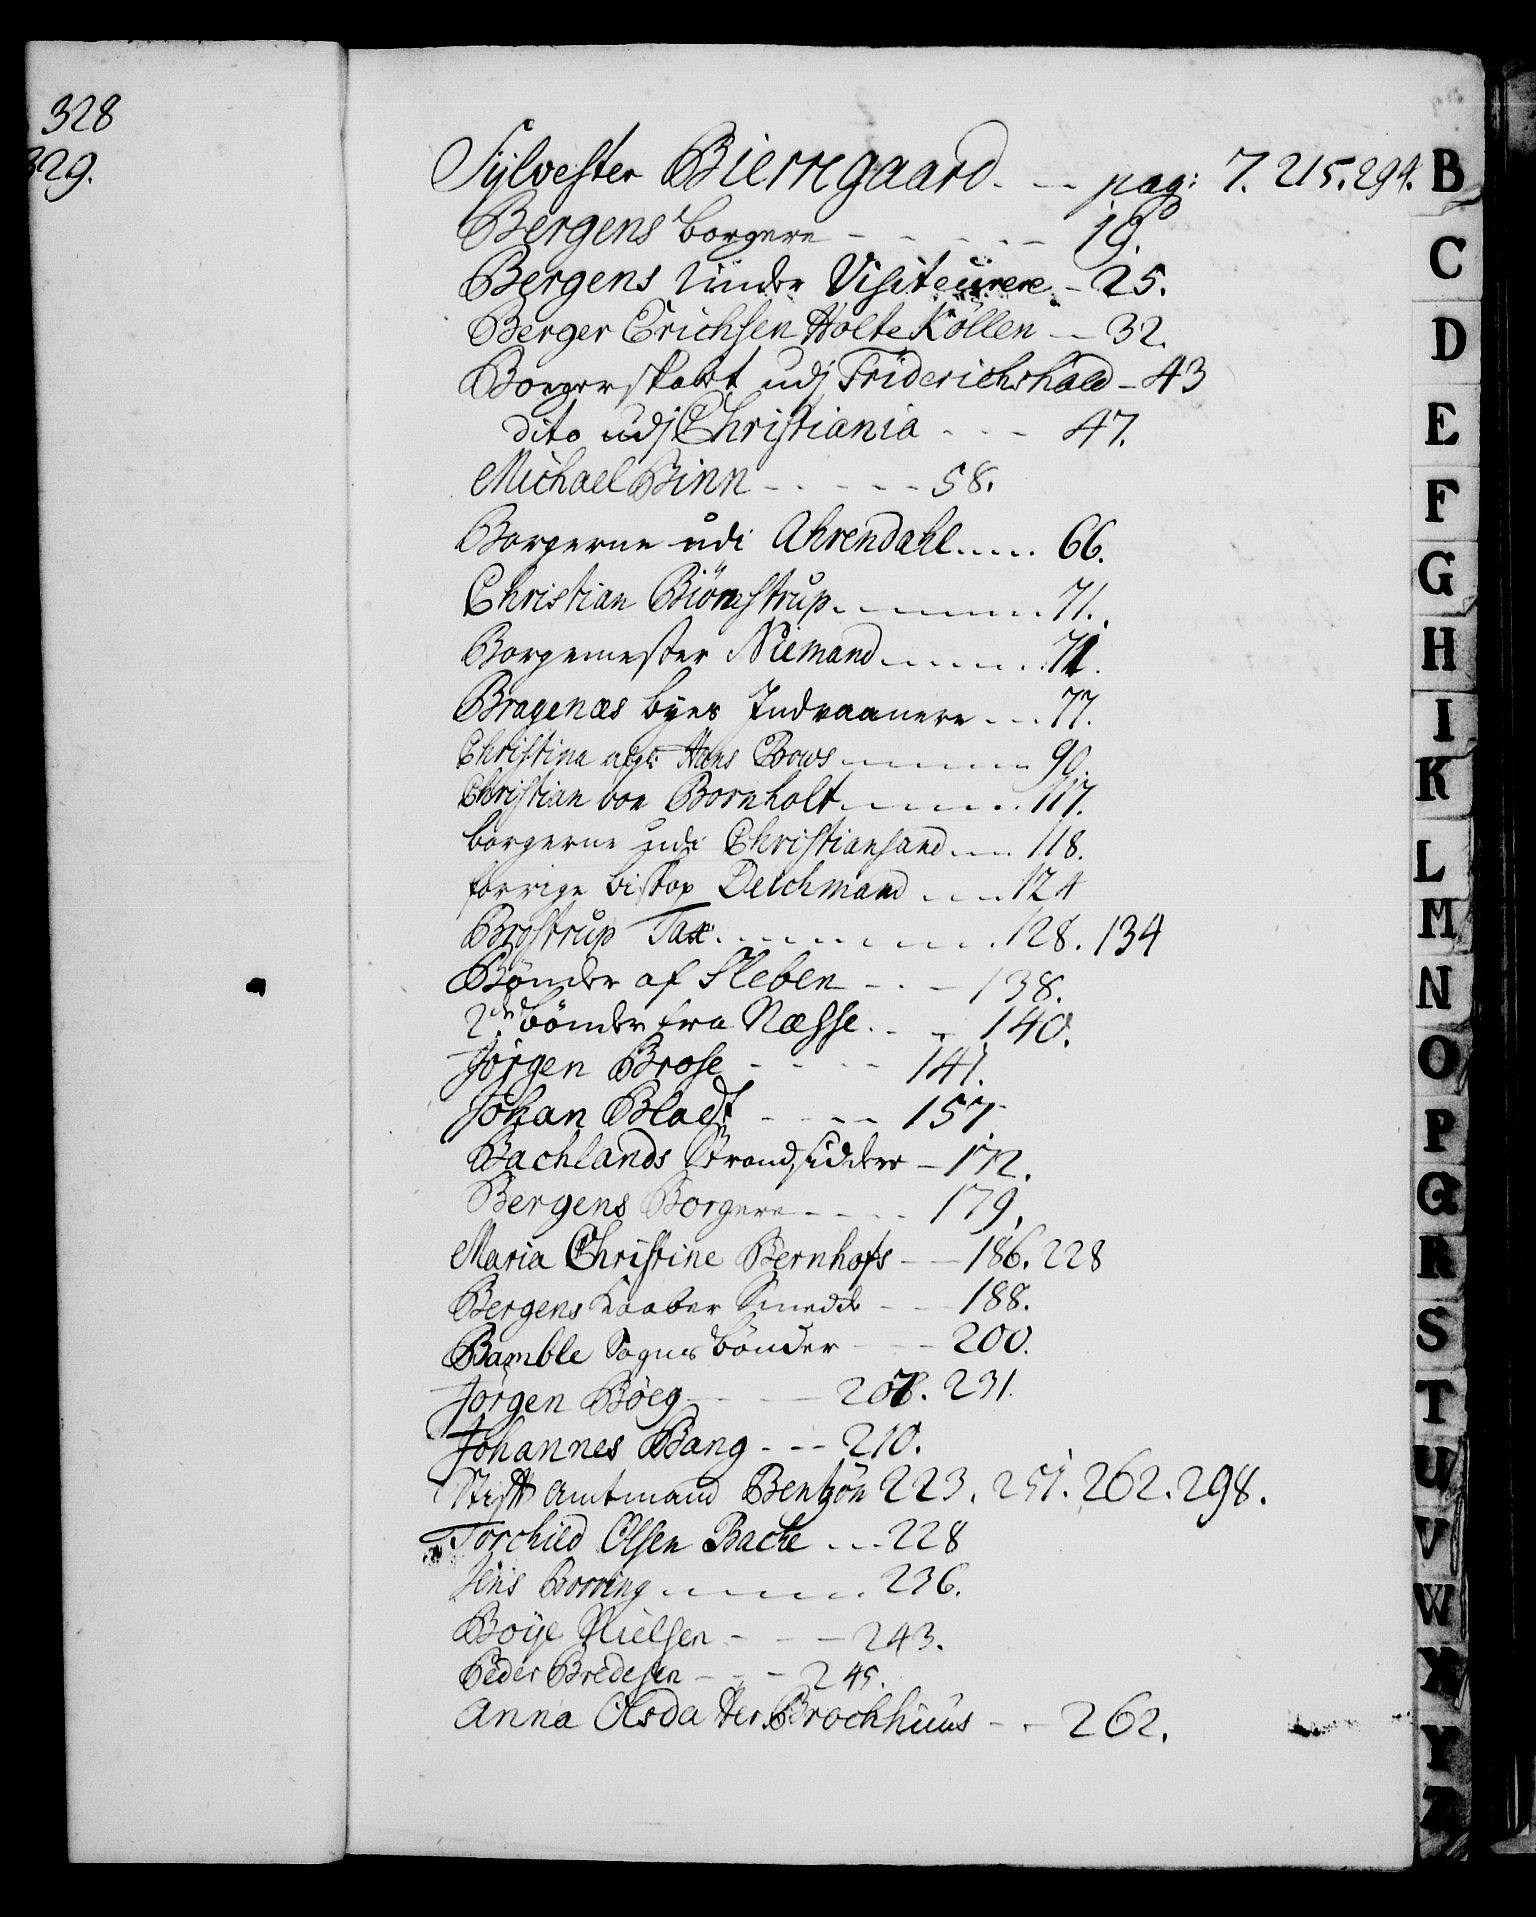 328
329.
Sylvester Bierregaard. - - pag: 7. 215. 294.
Bergens borgere - - - - - 19.
Bergens Under Visiteurere - 25.
Berger Erichsen Holte Köllen - - 32.
Borgerskabet udj Friderichshald - 43
dito udj Christiania - - - 47.
Michael Binn - - - - - 58.
Borgerne udi Ahrendahl..... 66.
Christian Biörnstrup. - - - - - 71.
Borgemester Niemand - - - - 71.
Bragenæs byes Indvaanere - - - 77.
Christina Hans Bows - - - - - 90.
Christian von Bornholt - - - - 117.
borgerne udi Christiansand - - - 118.
forrige biskop Deichmand - - - 124
Brostrup Tax. - - - - - - - 128. 134
Bønder af Sleben - - - 138.
2de bönder fra Næsse. - - 140.
Jörgen Brose - - - - 141.
Johan Bladt - - - - 157
Bachlands Strandsiddere - 172.
Bergens Borgere - - - - 179.
Maria Christine Bernhofs - - 186. 228
Bergens Kaaber Smedde - - - 188.
Bamble Sogns bönder - - - 200.
Jörgen Böeg - - - - 207. 231.
Johannes Bang - - - 210.
Stift Amtmand Bentzön 223. 251. 262. 298.
Torchild Olsen Bache - - - 228
Jens Borring - - - - - 236.
Boije Nielsen - - - - 243.
Peder Bredesen - - - 245.
Anna Olsdatter Brochhuus - - 262.
B
C
D
E
F
G
H
I
K
L
M
N
O
P
Q
R
S
T
U
V
W
X
Y
Z